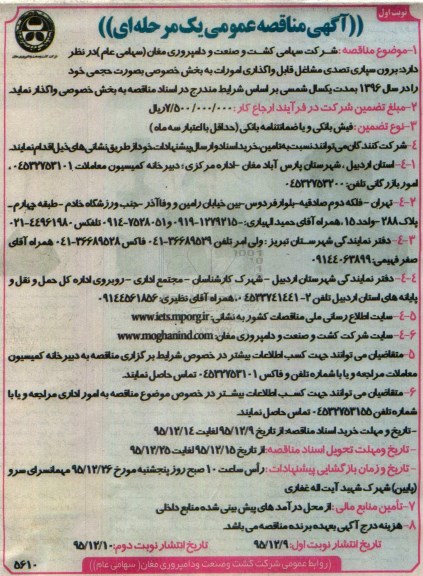 نوبت اول
((آگهی مناقصه عمومی یک مرحله ای))
۱-موضوع مناقصه: شرکت سهامی کشت و صنعت و دامپروری مغان (سهامی عام) در نظر
دارد: برون سپاری تصدی مشاغل قابل واگذاری امورات به بخش خصوصی بصورت حجمی خود
را در سال ۱۳۹۶ بمدت یکسال شمسی بر اساس شرایط مندرج در اسناد مناقصه به بخش خصوصی واگذار نماید.
۲-مبلغ تضمین شرکت در فرآیند ارجاع کار: ۷/۵۰۰/۰۰۰/۰۰۰ریال
۳-نوع تضمین: فیش بانکی و یا ضمانتنامه بانکی (حداقل با اعتبار سه ماه)
۴-شرکت کنندگان می توانند نسبت به تامین، خرید اسناد و ارسال پیشنهادات خود از طریق نشانی های ذیل اقدام نمایند.
۴-۱- استان اردبیل، شهرستان پارس آباد مغان -اداره مرکزی؛ دبیرخانه کمیسیون معاملات ۰۴۵۳۲۷۵۳۱۰۱،
امور بازرگانی تلفن: ۰۴۵۳۲۷۵۳۲۰۰
۴-۲- تهران - فلکه دوم صادقیه-بلوار فردوس-بین خیابان رامین و وفاآذر -جنب ورزشگاه خادم - طبقه چهارم-
پلاک ۲۸۸-واحد ۱۵، همراه آقای حمید الهیاری: ۱۲۷۹۲۱۵-۰۹۱۹ و ۷۵۲۸۰۵۱-۰۹۱۴ تلفکس ۴۴۹۶۱۹۸۰-۰۲۱
۴-۳- دفتر نمایندگی شهرستان تبریز : ولی امر تلفن ۳۶۶۸۹۵۲۹-۰۴۱ فاکس ۳۶۶۸۹۵۲۸-۰۴۱ همراه آقای
صفر فهیمی: ۰۹۱۴۴۰۶۳۸۹۹
۴-۴- دفتر نمایندگی شهرستان اردبیل - شهرک کارشناسان - مجتمع اداری - روبروی اداره کل حمل و نقل و
پایانه های استان اردبیل تلفن ۲-۰۴۵۳۳۷۴۱۴۴۱ ، همراه آقای نظیری: ۰۹۱۴۴۵۶۱۸۵۶
۴-۵- سایت اطلاع رسانی ملی مناقصات کشور به نشانی: www.iets.mporg.ir
۴-۶- سایت شرکت کشت و صنعت و دامپروری مغان: www.moghanind.com
۵-متقاضیان می توانند جهت کسب اطلاعات بیشتر در خصوص شرایط برگزاری مناقصه به دبیرخانه کمیسیون
معاملات مراجعه و یا با شماره تلفن و فاکس ۰۴۵۳۲۷۵۳۱۰۱ تماس حاصل نمایند.
۶-متقاضیان می توانند جهت کسب اطلاعات بیشتر در خصوص موضوع مناقصه به امور اداری مراجعه و یا با
شماره تلفن ۰۴۵۳۲۷۵۳۱۵۵ تماس حاصل نمایند.
-تاریخ و مهلت خرید اسناد مناقصه: از تاریخ ۹۵/۱۲/۹ لغایت ۹۵/۱۲/۱۴
-تاریخ و مهلت تحویل اسناد مناقصه: از تاریخ ۹۵/۱۲/۱۵ لغایت ۹۵/۱۲/۲۵
-تاریخ و زمان بازگشایی پیشنهادات: رأس ساعت ۱۰ صبح روز پنجشنبه مورخ ۹۵/۱۲/۲۶ مهمانسرای سرو
(پایین) شهرک شهید آیت اله غفاری
۷-تأمین منابع مالی: از محل درآمدهای پیش بینی شده منابع داخلی
۸-هزینه درج آگهی بعهده برنده مناقصه می باشد.
تاریخ انتشار نوبت اول: ۹۵/۱۲/۹ تاریخ انتشار نوبت دوم: ۹۵/۱۲/۱۰
((روابط عمومی شرکت کشت و صنعت و دامپروری مغان( سهامی عام))
۵۶۱۰